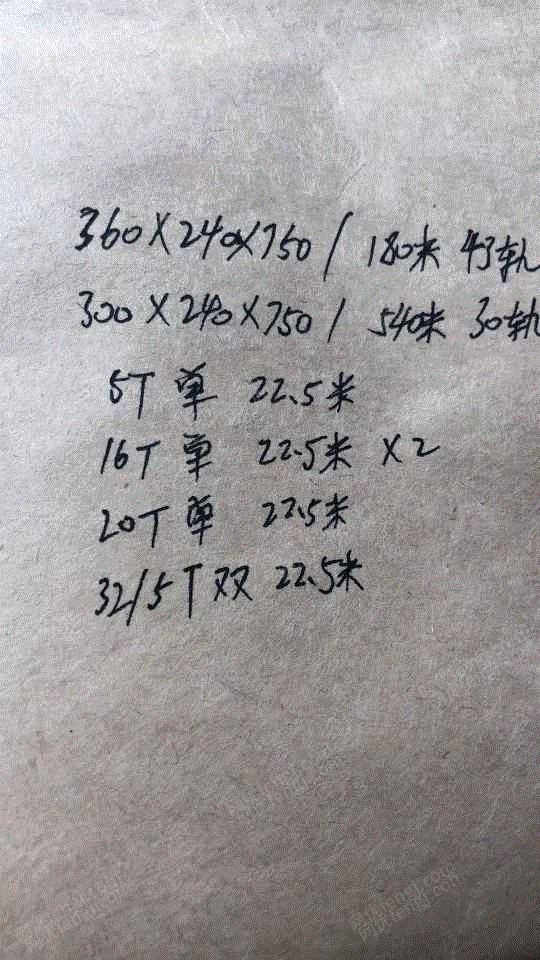 360×240×750/ 180米 43轨
300×240×750/ 540米 30轨
5T 单 22.5米
16T 单 22.5米 ×2
20T 单 22.5米
32/5T 双 22.5米